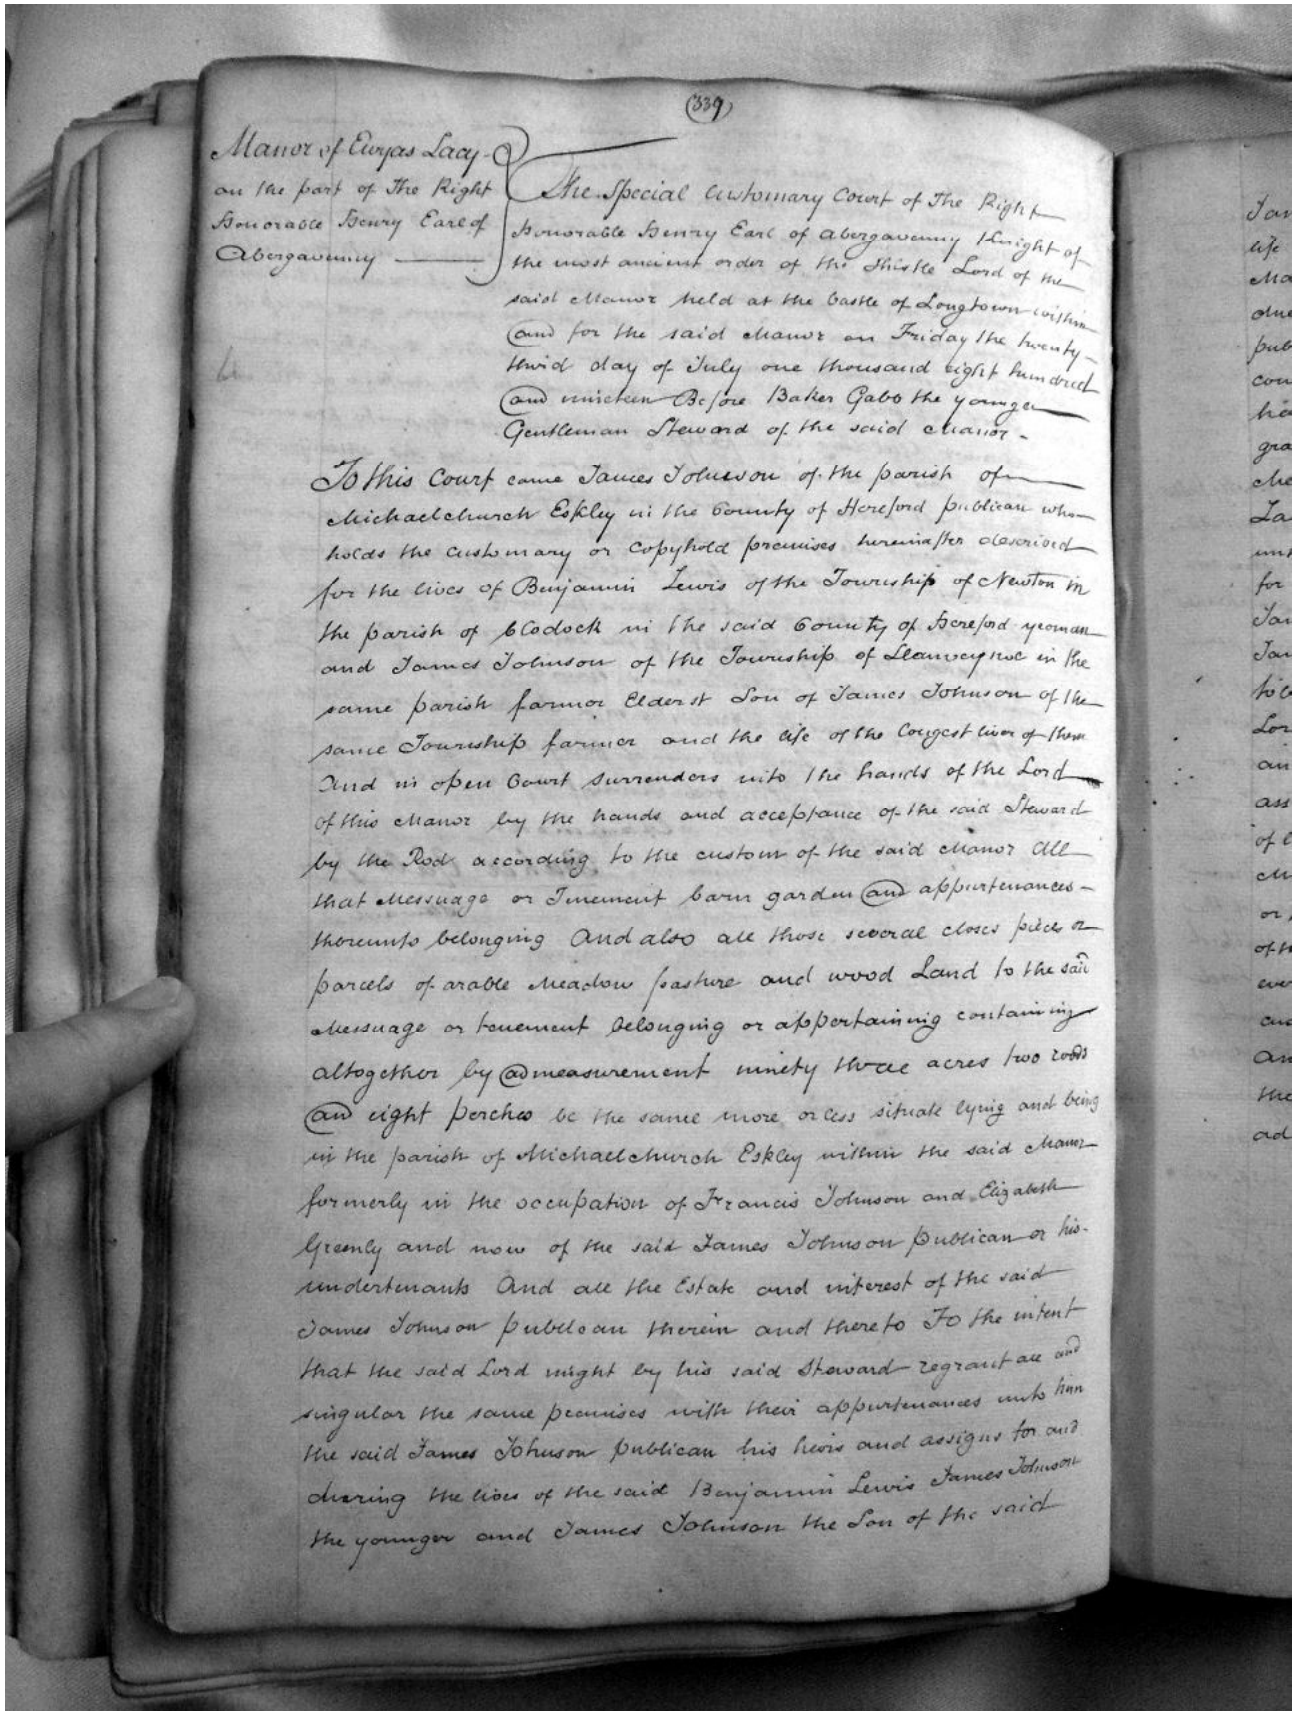 (339)
Manor of Ewyas Lacy
on the part of The Right
Honorable Henry Earl of
Abergavenny
The Special Customary Court of The Right
Honorable Henry Earl of Abergavenny Knight of
the most ancient order of the Thistle Lord of the
said Manor held at the Castle of Longtown within
and for the said Manor on Friday the twenty
third day of July one thousand eight hundred
and nineteen Before Baker Gabb the younger
Gentleman Steward of the said Manor -
To this Court came James Johnson of the parish of
Michaelchurch Eskley in the County of Hereford publican who
holds the customary or copyhold premises hereinafter described
for the lives of Benjamin Lewis of the Township of Newton in
the parish of Clodock in the said County of Hereford yeoman
and James Johnson of the Township of Llanveynoe in the
same parish farmer Elderst Son of James Johnson of the
same Township farmer and the life of the longest liver of them
And in open Court surrenders into the hands of the Lord
of this Manor by the hands and acceptance of the said Steward
by the Rod according to the custom of the said Manor All
that Messuage or Tenement barn garden and appurtenances -
thereunto belonging And also all those several closes pieces or
parcels of arable Meadow pasture and wood Land to the said
Messuage or tenement belonging or appertaining containing
altogether by admeasurement ninety three acres two roods
and eight perches be the same more or less situate lying and being
in the parish of Michaelchurch Eskley within the said Manor
formerly in the occupation of Francis Johnson and Elizabeth
Greenly and now of the said James Johnson publican or his -
undertenants And all the Estate and interest of the said
James Johnson publican therein and thereto To the intent
that the said Lord might by his said Steward regrant all and
singular the same premises with their appurtenances unto him
the said James Johnson publican his heirs and assigns for and
during the lives of the said Benjamin Lewis James Johnson
the younger and James Johnson the Son of the said
life
pub
con
gra
for
Lor
an
ass
of
or
of th
ever
and
An
the
ad